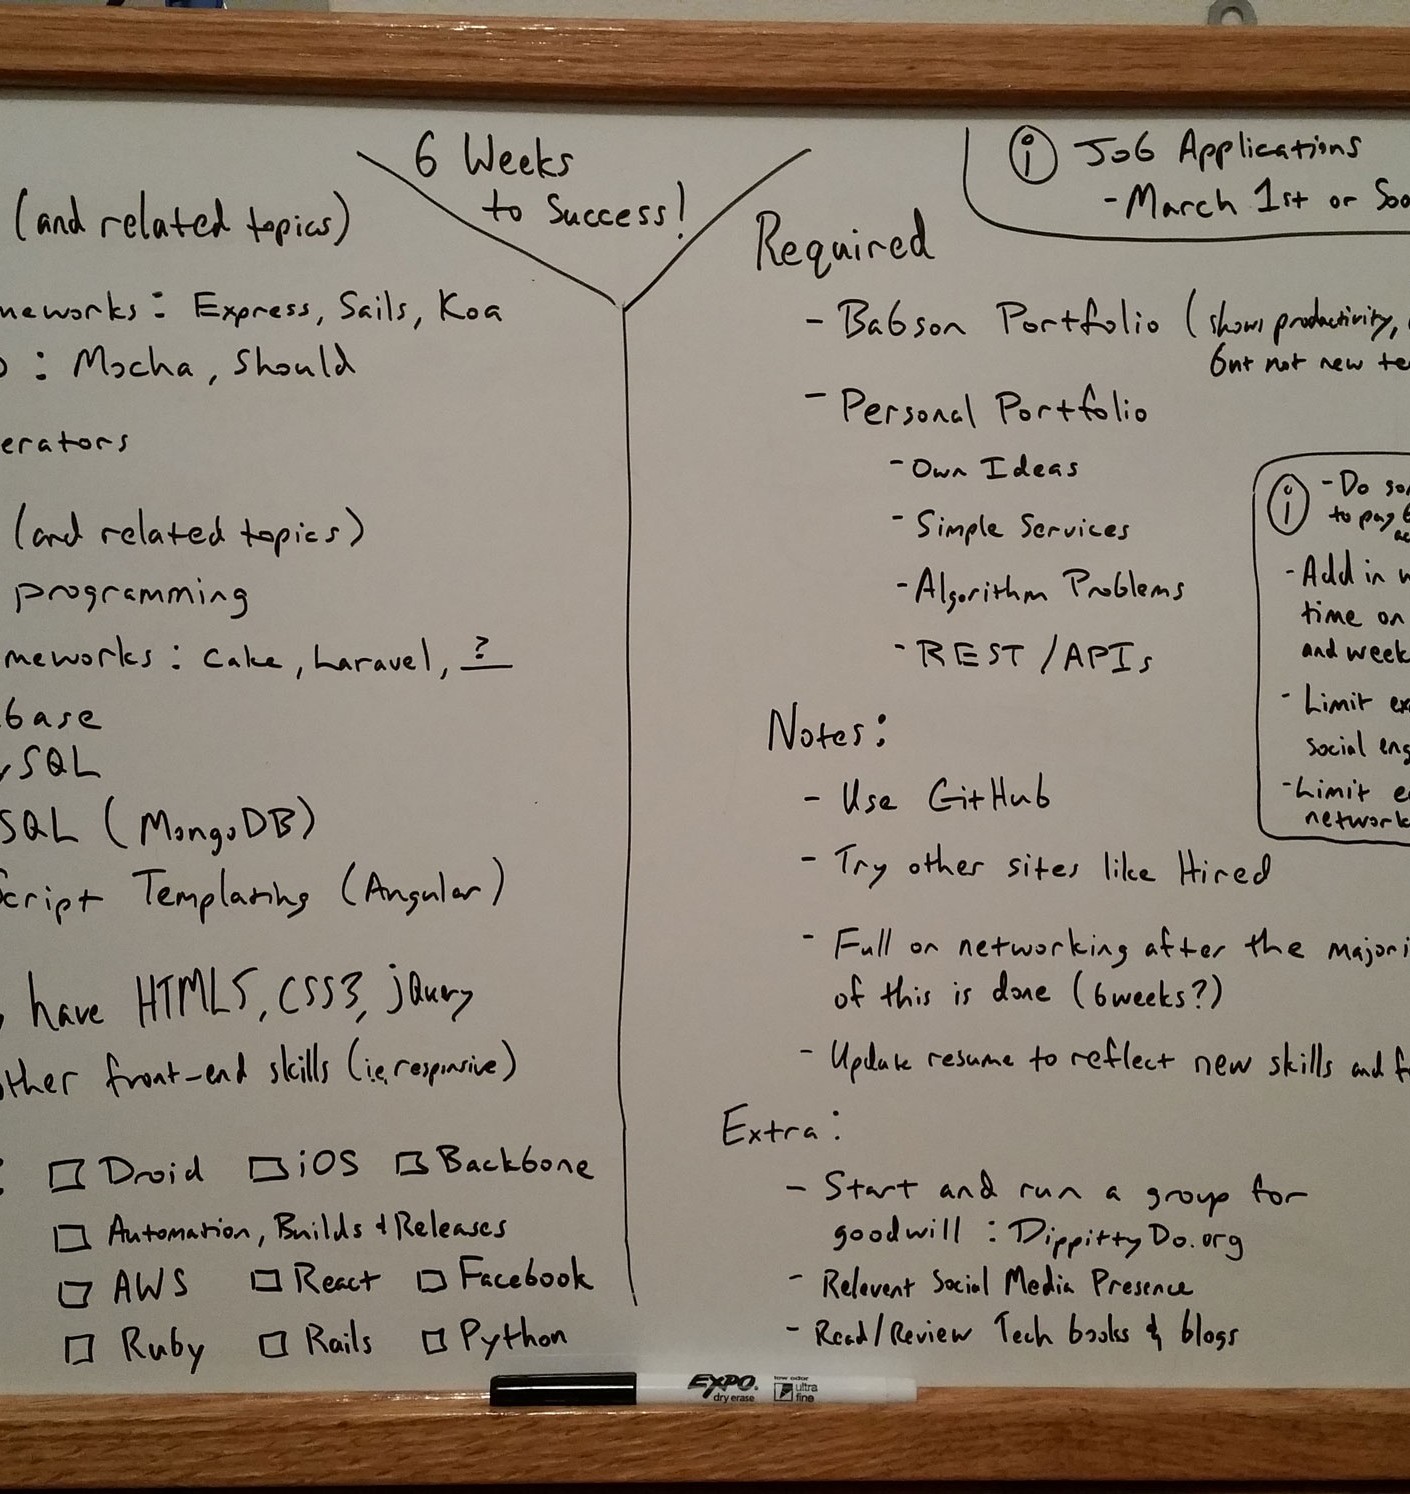 6 Weeks
to Success!
(and related topics)
meworks: Express, Sails, Koa
: Mocha, Should
erators
(and related topics)
programming
meworks: Cake, Laravel, ?
base
ySQL
SQL (MongoDB)
cript Templating (Angular)
have HTML5, CSS3, jQuery
ther front-end skills (i.e. responsive)
Droid iOS Backbone
Automation, Builds & Releases
AWS React Facebook
Ruby Rails Python
i Job Applications
- March 1st or Soo
Required
- Babson Portfolio (shows productivity,
but not new te
- Personal Portfolio
- Own Ideas
- Simple Services
- Algorithm Problems
- REST/APIs
i - Do so
to pay b
- Add in w
time on
and week
- Limit ex
social eng
- Limit e
network
Notes:
- Use GitHub
- Try other sites like Hired
- Full on networking after the majori
of this is done (6 weeks?)
- Update resume to reflect new skills and f
Extra:
- Start and run a group for
goodwill: DippittyDo.org
- Relevent Social Media Presence
- Read/Review Tech books & blogs
EXPO.
dry erase
low odor
ultra
fine